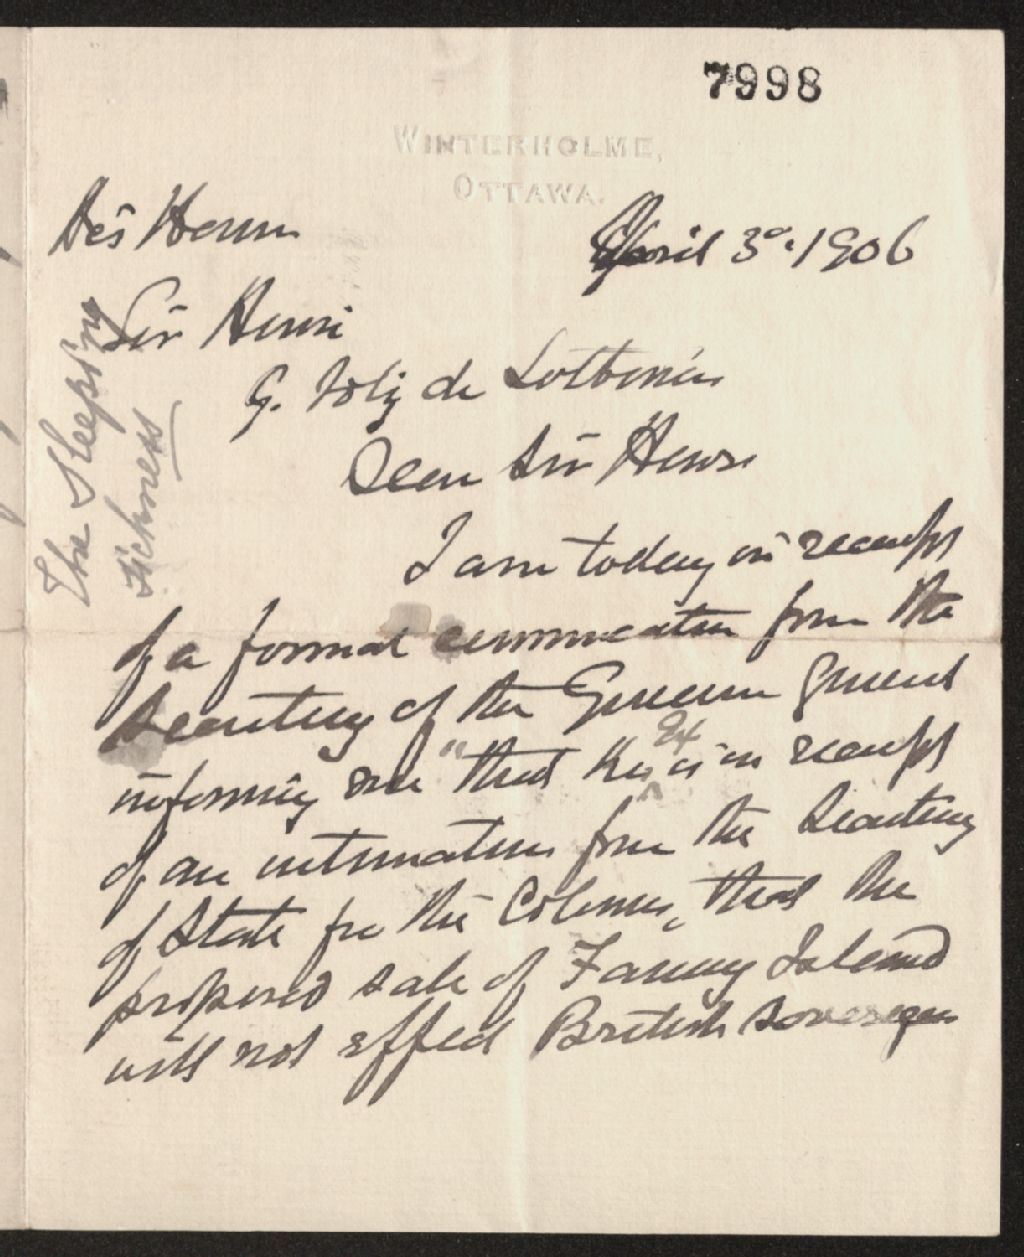 7998
WINTERHOLME,
OTTAWA.
April 3d. 1906
His Honor
Sir Henri
G. Joly de Lotbinière
Dear Sir Henri
I am today in receipt
of a formal communication from the
Secretary of the Governor General
informing me "that His Ex is in receipt
of an intimation from the Secretary
of State for the Colonies, that the
proposed sale of Fanning Island
will not effect British sovereign
The Sleeping
Sickness